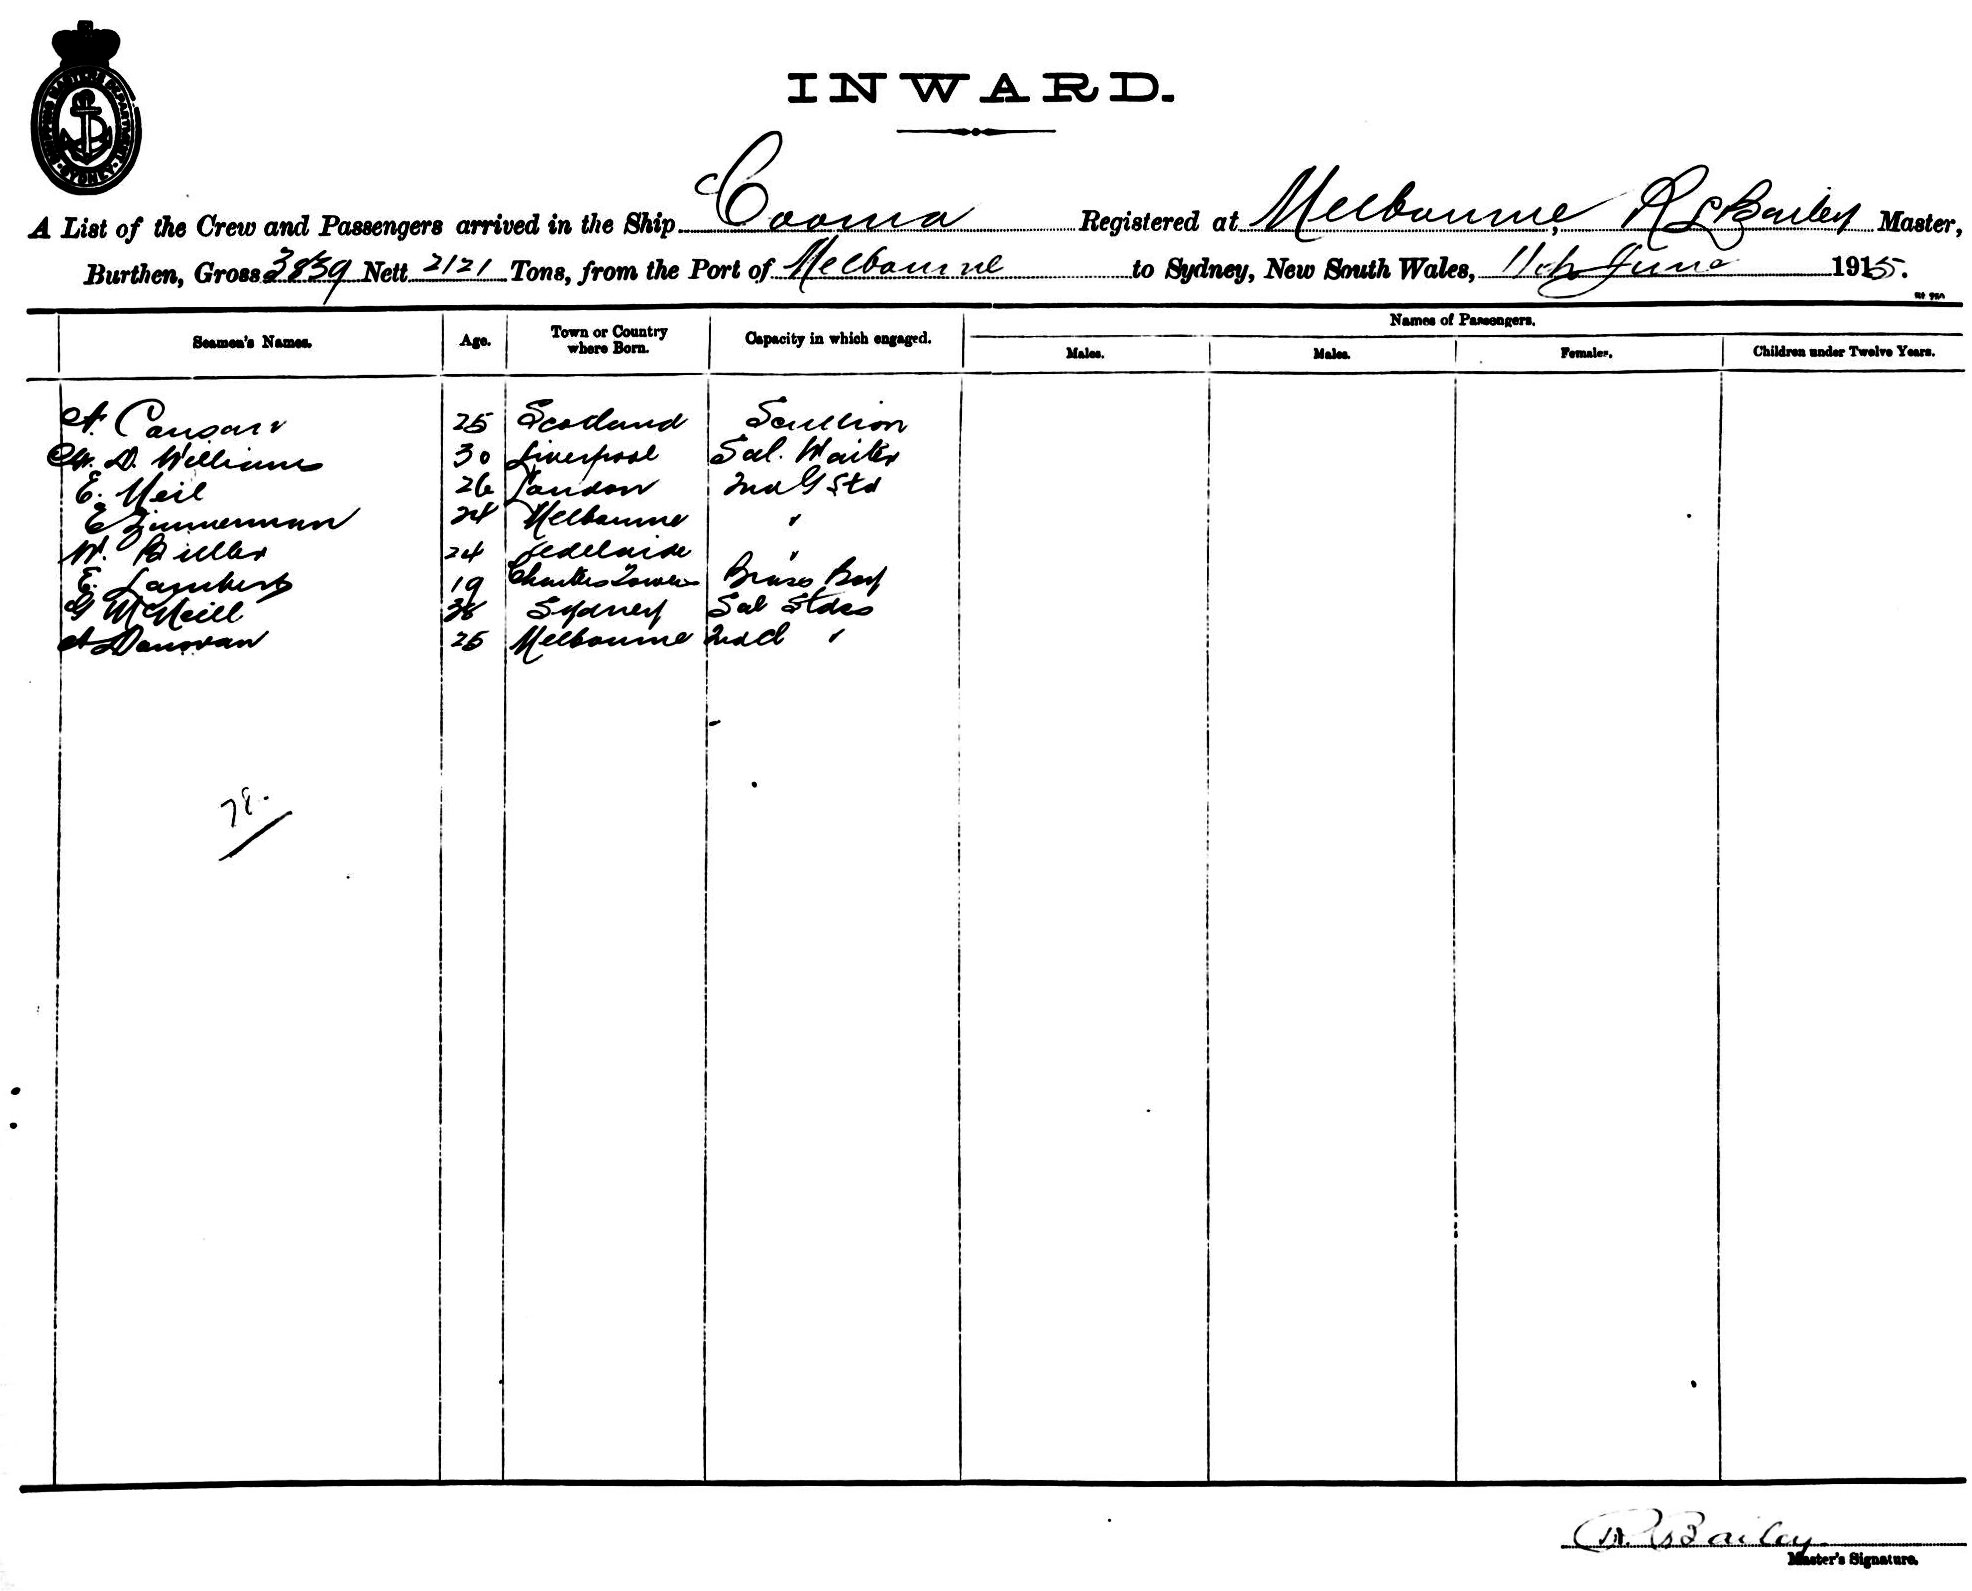 SHIPPING MASTERS DEPARTMENT SYDNEY
INWARD.
A List of the Crew and Passengers arrived in the Ship Cooma Registered at Melbourne, R S Bailey Master,
Burthen, Gross 3839 Nett 2121 Tons, from the Port of Melbourne to Sydney, New South Wales, 11th June 1915.
Names of Passengers.
Seamen's Names. Age. Town or Country where Born. Capacity in which engaged. Males. Males. Females. Children under Twelve Years.
A. 25 Scotland Scullion
W. D. Williams 30 Liverpool Sal. Waiter
E. Neil 26 London 2nd G Std
E Zimmerman 24 Melbourne "
W. Butler 24 Adelaide "
E. Lambert 19 Charters Towers Brass Boy
G McNeill 38 Sydney Sal Stdss
A Donovan 25 Melbourne 2nd Cl "
78.
R. S Bailey
Master's Signature.